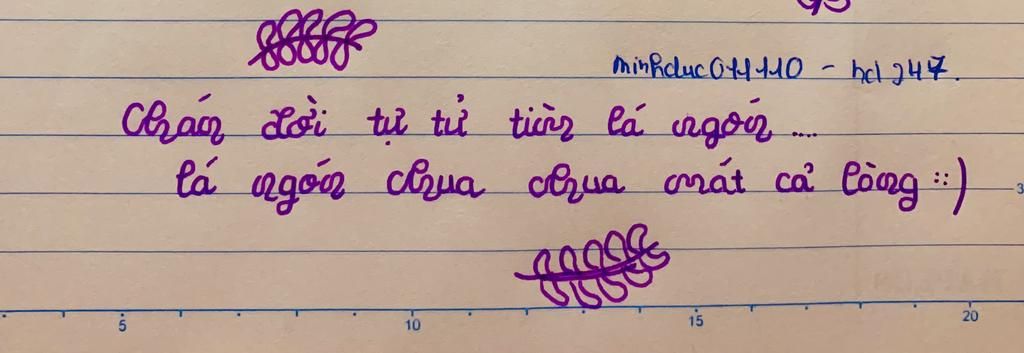 minhduc011110 - hd247.
Chán đời tự tử tìm lá ngón ....
lá ngón chua chua mát cả lòng ::)
5 10 15 20